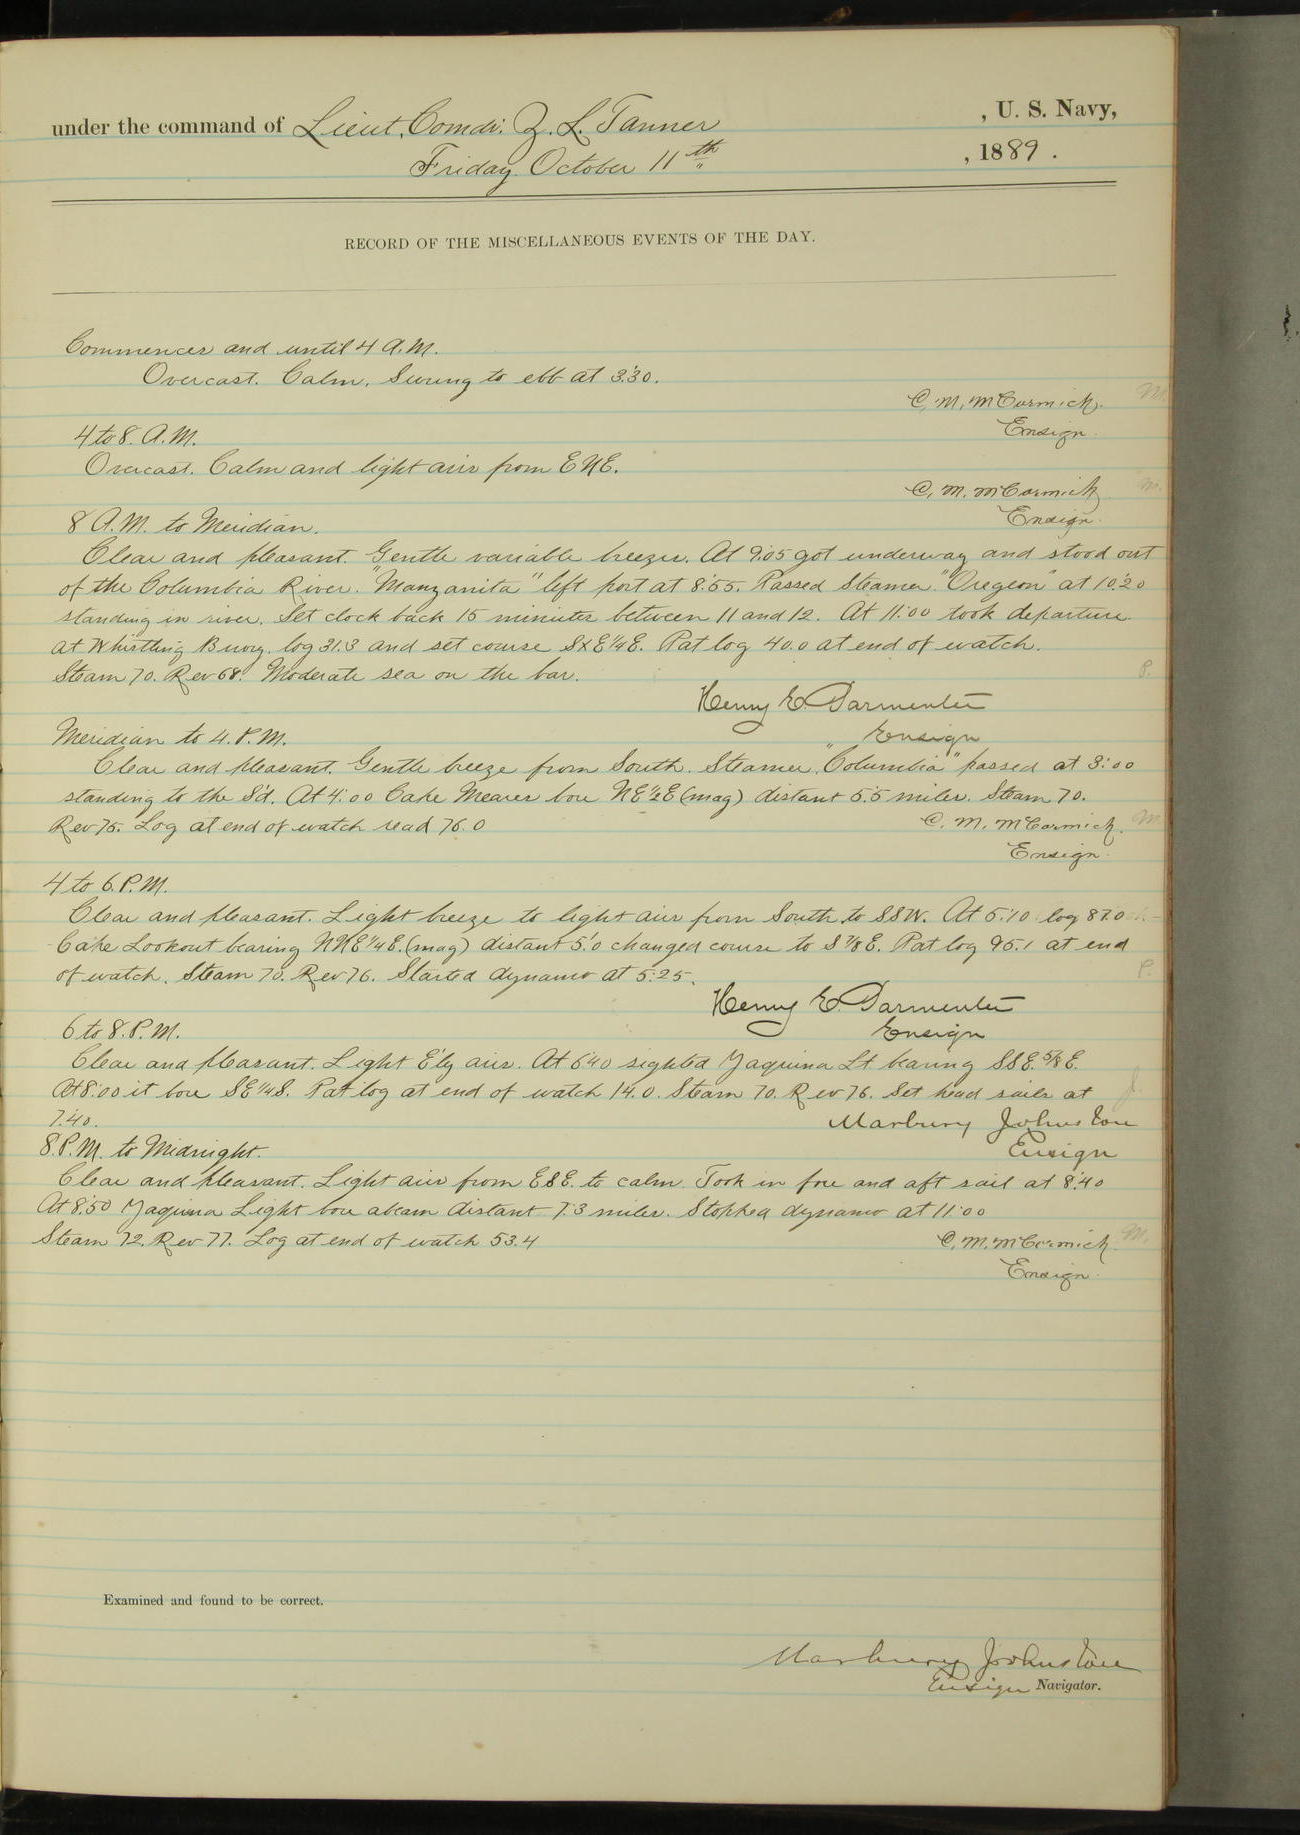 under the command of Lieut. Comdr. Z. L. Tanner , U. S. Navy,
Friday October 11th , 1889.
RECORD OF THE MISCELLANEOUS EVENTS OF THE DAY.
Commences and until 4 A.M.
Overcast. Calm. Swung to ebb at 3:30.
C. M. McCormick.
Ensign.
4 to 8. A.M.
Overcast. Calm and light airs from ENE.
C. M. McCormick
Ensign.
8 A.M. to Meridian.
Clear and pleasant. Gentle variable breezes. At 9:05 got underway and stood out
of the Columbia River. "Manzanita" left port at 8:55. Passed Steamer "Oregon" at 10:20
standing in river. Set clock back 15 minutes between 11 and 12. At 11:00 took departure
at Whistling Buoy. log 31.3 and set course SxE¼E. Pat log 40.0 at end of watch.
Steam 70. Rev 68. Moderate sea on the bar.
Henry E. Parmenter
Ensign
Meridian to 4. P.M.
Clear and pleasant. Gentle breeze from South. Steamer "Columbia" passed at 3:00
standing to the S'd. At 4:00 Cape Meares bore NE½E (mag) distant 5.5 miles. Steam 70.
Rev 75. Log at end of watch read 76.0
C. M. McCormick.
Ensign.
4 to 6. P.M.
Clear and pleasant. Light breeze to light airs from South to SSW. At 5:10 log 87.0
Cape Lookout bearing NNE¼E. (mag) distant 5.0 changed course to S⅞E. Pat log 95.1 at end
of watch. Steam 70. Rev 76. Started dynamo at 5:25.
Henry E. Parmenter
Ensign
6 to 8. P.M.
Clear and pleasant. Light E'ly airs. At 6:40 sighted Yaquina Lt bearing SSE.⅝E.
At 8:00 it bore SE¼S. Pat log at end of watch 14.0. Steam 70. Rev 76. Set head sails at
7:40.
Marbury Johnston
Ensign
8. P.M. to Midnight.
Clear and pleasant. Light airs from ESE. to calm. Took in fore and aft sail at 8:40
At 8:50 Yaquina Light bore abeam distant 7.3 miles. Stopped dynamo at 11:00
Steam 72. Rev 77. Log at end of watch 53.4
C. M. McCormick
Ensign.
Examined and found to be correct.
Marbury Johnston
Ensign Navigator.